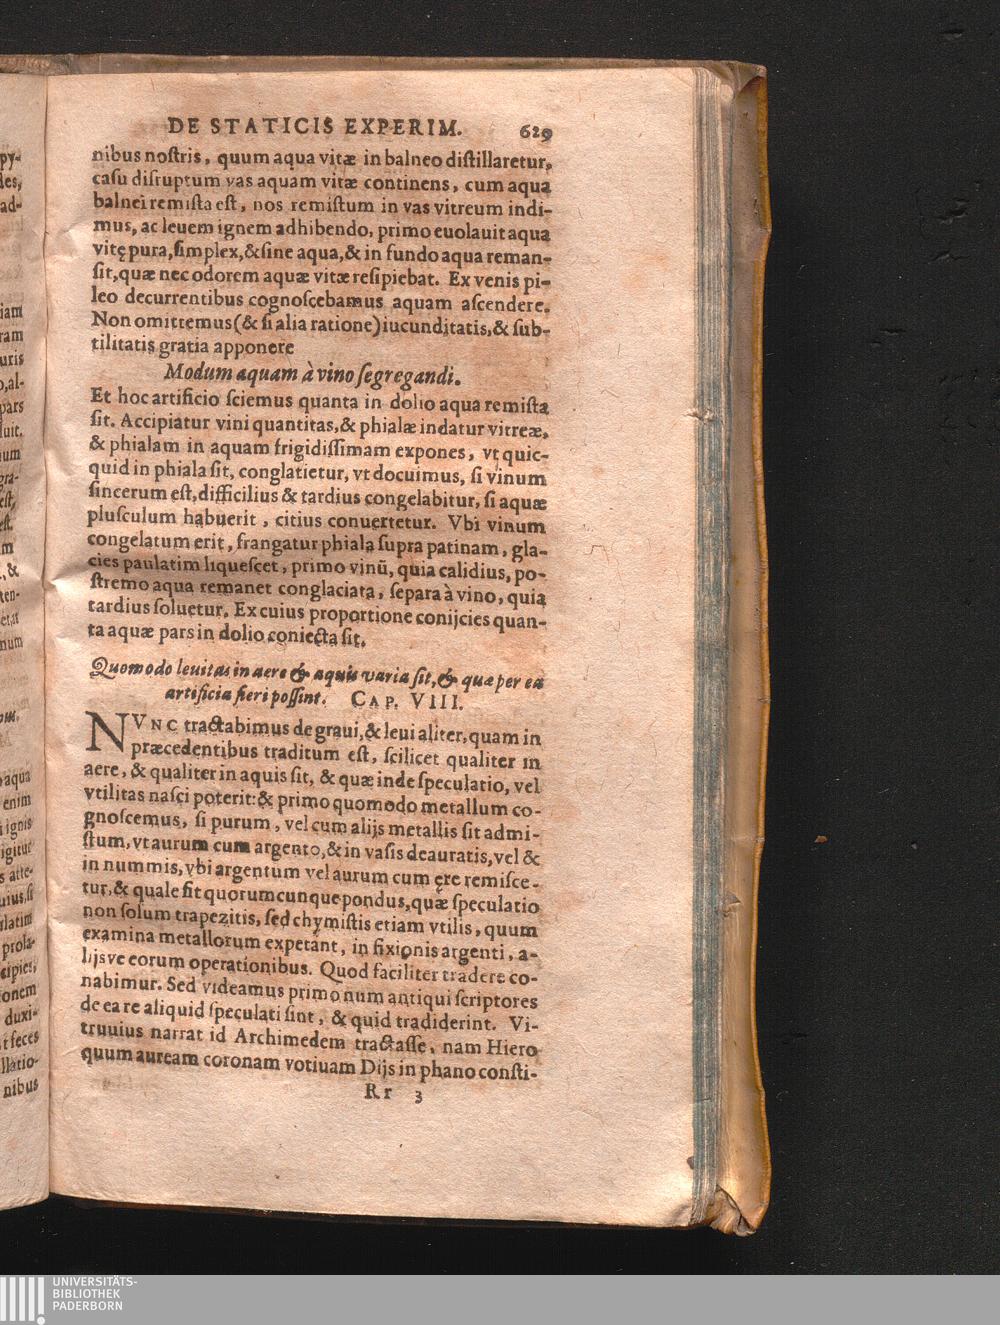 DE STATICIS EXPERIM. 629
nibus noſtris, quum aqua vitæ in balneo diſtillaretur,
caſu diſruptum vas aquam vitæ continens, cum aqua
balnei remiſta eſt, nos remiſtum in vas vitreum indi-
mus, ac leuem ignem adhibendo, primo euolauit aqua
vitę pura, ſimplex, & ſine aqua, & in fundo aqua reman-
ſit, quæ nec odorem aquæ vitæ reſipiebat. Ex venis pi-
leo decurrentibus cognoſcebamus aquam aſcendere.
Non omittemus (& ſi alia ratione) iucunditatis, & ſub-
tilitatis gratia apponere
Modum aquam à vino ſegregandi.
Et hoc artificio ſciemus quanta in dolio aqua remiſta
ſit. Accipiatur vini quantitas, & phialæ indatur vitreæ,
& phialam in aquam frigidiſſimam expones, vt quic-
quid in phiala ſit, conglatietur, vt docuimus, ſi vinum
ſincerum eſt, difficilius & tardius congelabitur, ſi aquæ
pluſculum habuerit, citius conuertetur. Vbi vinum
congelatum erit, frangatur phiala ſupra patinam, gla-
cies paulatim liqueſcet, primo vinũ, quia calidius, po-
ſtremo aqua remanet conglaciata, ſepara à vino, quia
tardius ſoluetur. Ex cuius proportione conijcies quan-
ta aquæ pars in dolio coniecta ſit.
Quomodo leuitas in aere & aquis varia ſit, & quæ per ea
artificia fieri poſſint. CAP. VIII.
NVNC tractabimus de graui, & leui aliter, quam in
præcedentibus traditum eſt, ſcilicet qualiter in
aere, & qualiter in aquis ſit, & quæ inde ſpeculatio, vel
vtilitas naſci poterit: & primo quomodo metallum co-
gnoſcemus, ſi purum, vel cum alijs metallis ſit admi-
ſtum, vt aurum cum argento, & in vaſis deauratis, vel &
in nummis, vbi argentum vel aurum cum ęre remiſce-
tur, & quale ſit quorumcunque pondus, quæ ſpeculatio
non ſolum trapezitis, ſed chymiſtis etiam vtilis, quum
examina metallorum expetant, in fixionis argenti, a-
lijsve eorum operationibus. Quod faciliter tradere co-
nabimur. Sed videamus primo num antiqui ſcriptores
de ea re aliquid ſpeculati ſint, & quid tradiderint. Vi-
truuius narrat id Archimedem tractaſſe, nam Hiero
quum auream coronam votiuam Dijs in phano conſti-
Rr 3
UNIVERSITÄTS-
BIBLIOTHEK
PADERBORN